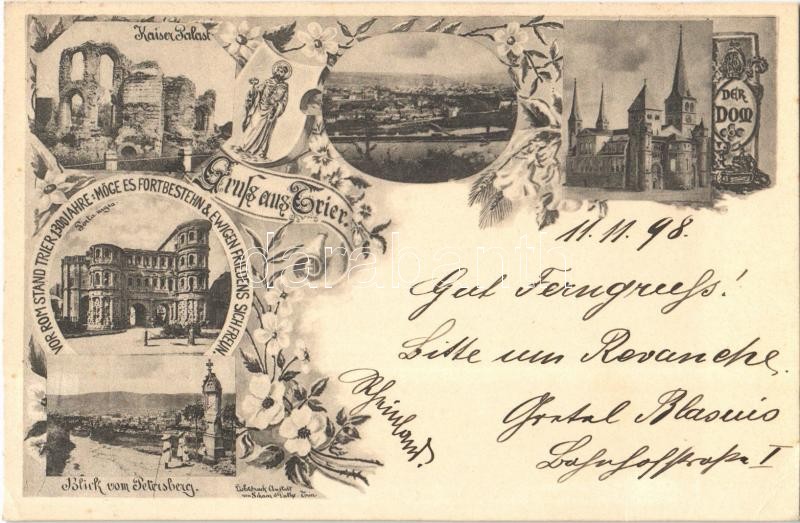 Kaiser Palast
DER
DOM
Gruss aus Trier.
VOR ROM STAND TRIER 1300 JAHRE = MÖGE ES FORTBESTEHN & EWIGEN FRIEDENS SICH FREUN.
Porta nigra
11. 11. 98.
Gut Ferngruss!
Bitte um Revanche.
Gretel Blasius
Bahnhofstraße I
Rheinland.
Blick vom Petersberg.
Lichtdruck Anstalt
von Schaar & Dathe. Trier
darabanth